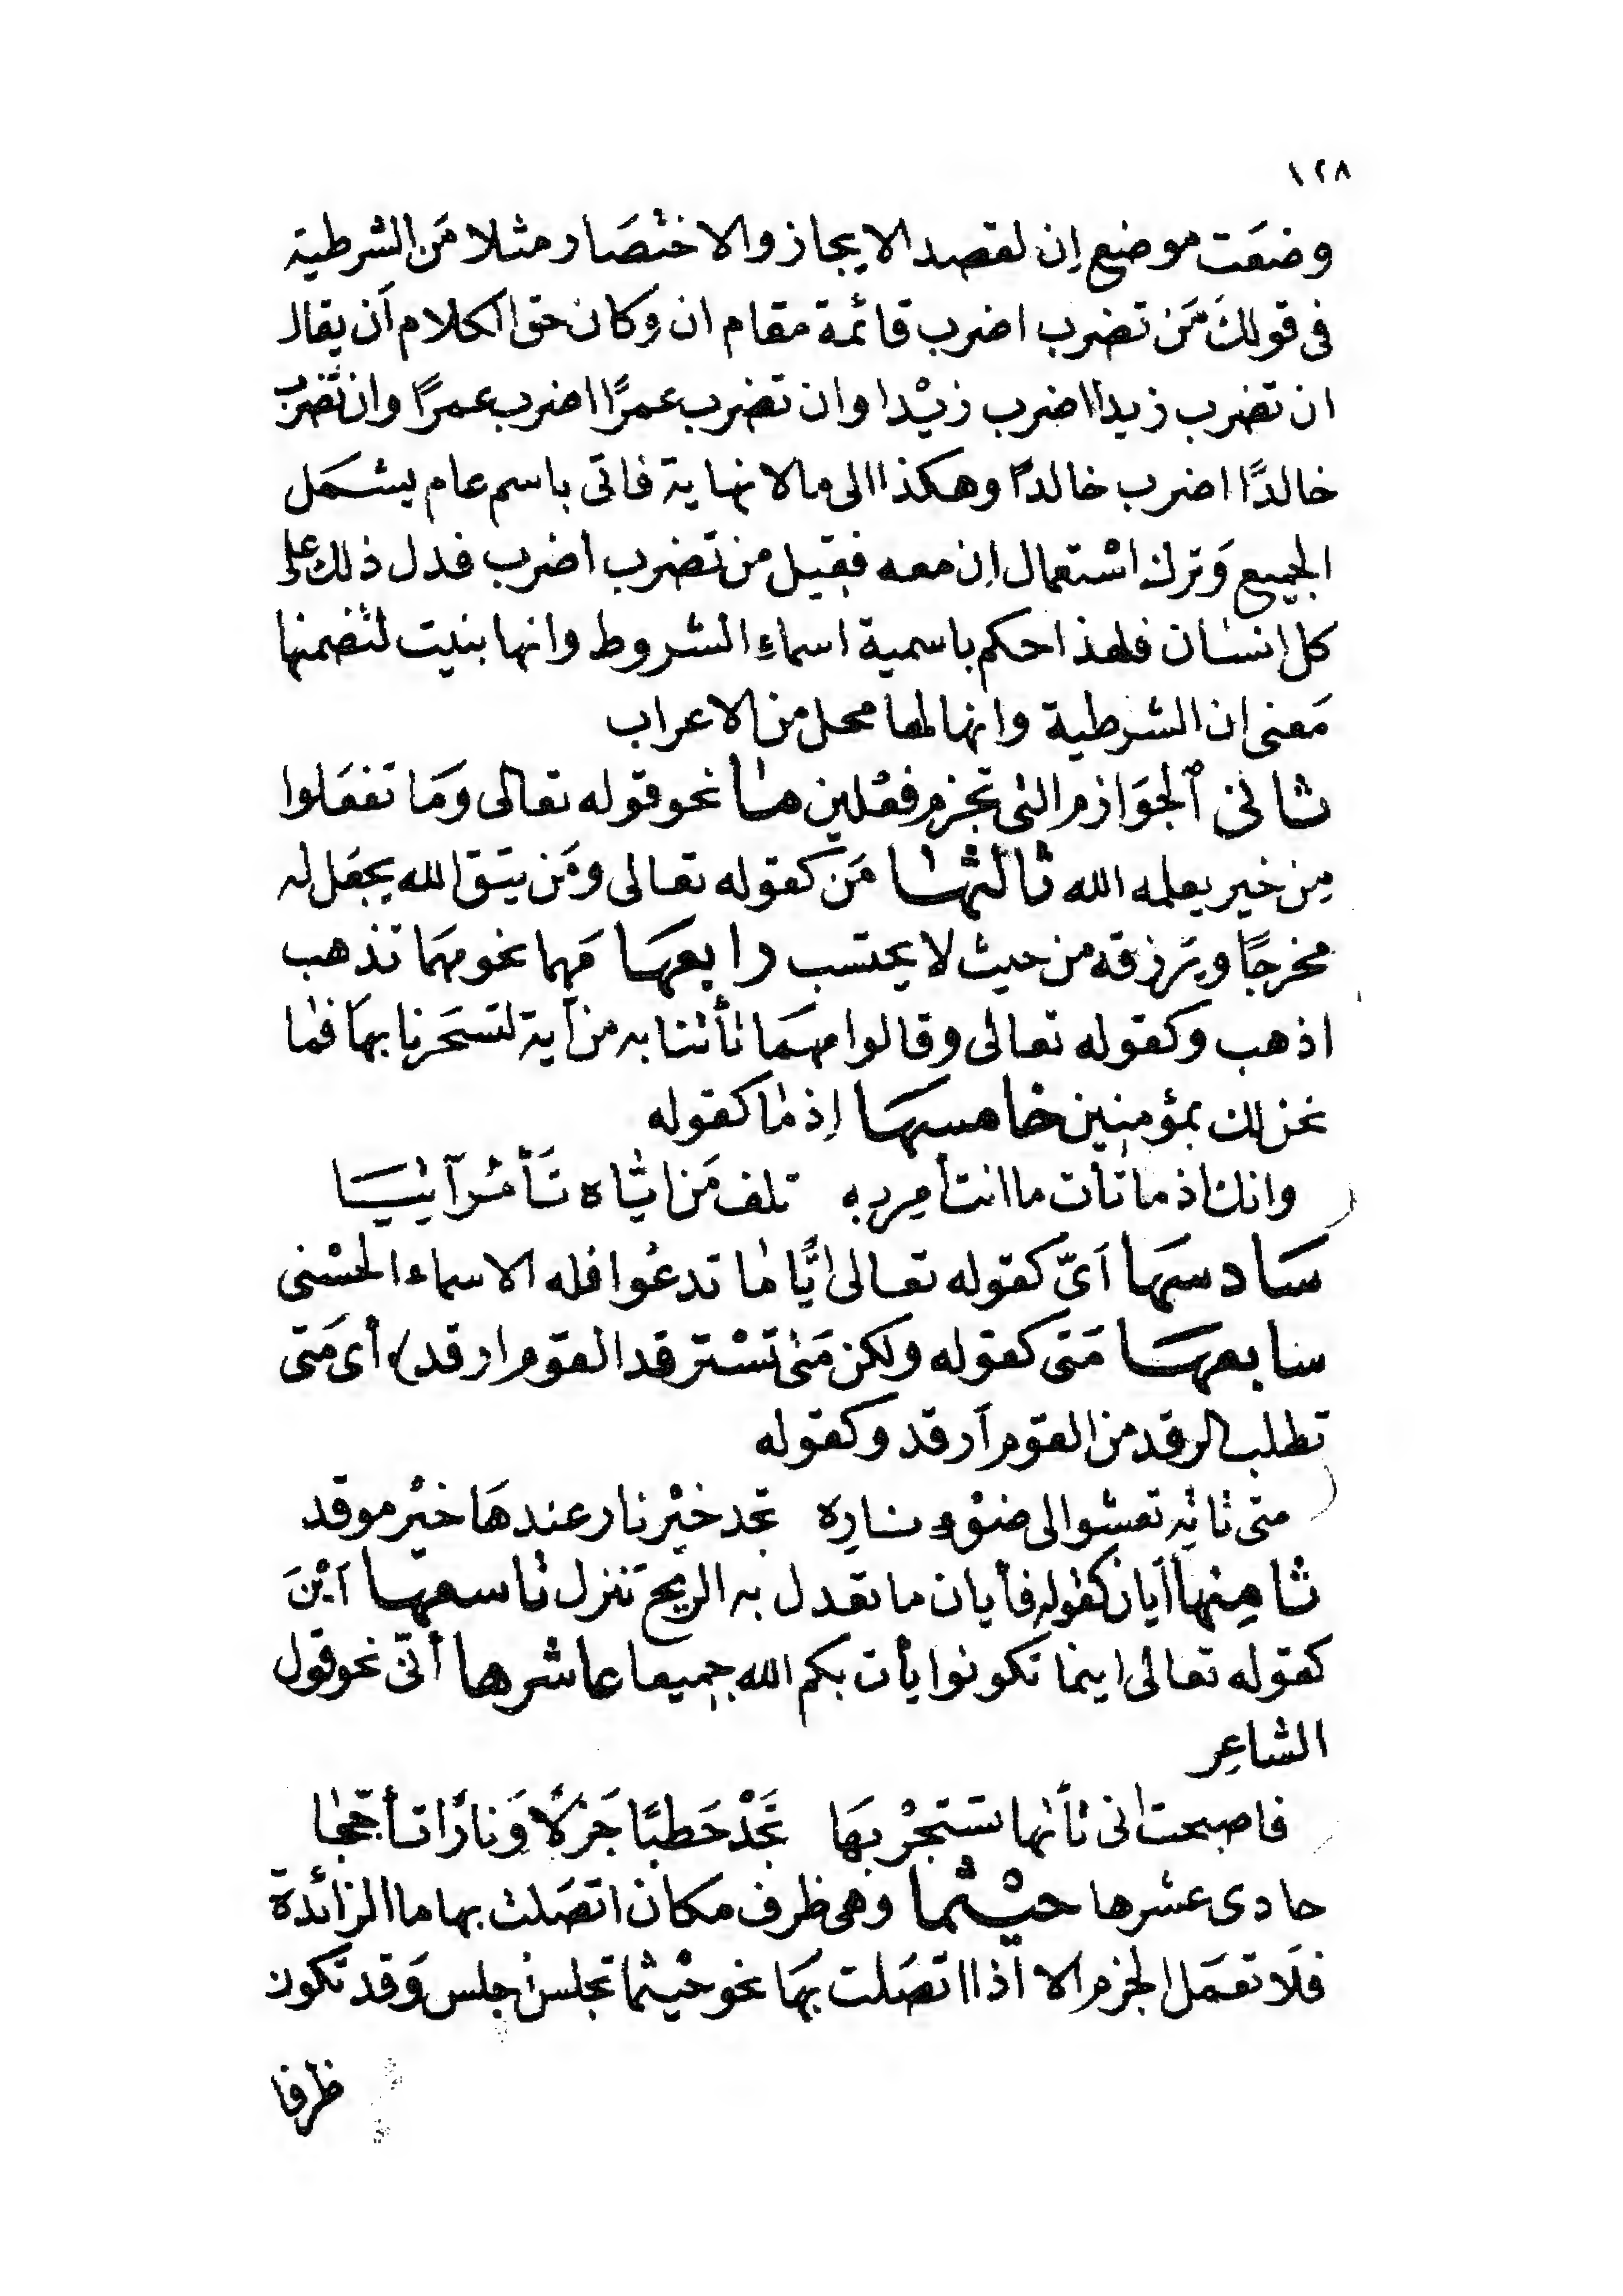 ١٢٨
وضعَت موضع إن لقصد الايجاز والاختصَار مثلا مَن الشرطية
فى قولك مَن تضرب اضرب قائمة مقام ان وكان حق الكلام أن يقال
ان تضرب زيدا اضرب زيْدا وان تضرب عمرًا اضرب عمرًا وان تضرب
خالدًا اضرب خالدًا وهكذا الى ما لا نهاية فاتى باسم عام يشمَل
الجميع وَترك اسْتعمال إن معه فقيل من تضرب أضرب فدل ذلك على
كل انسان فلهذا حكم باسمية اسماءِ الشروط وانها بنيت لتضمنها
مَعنى ان الشرطية وانها لها محل من الاعراب
ثانى ٱلجوَازم التى تجزم فعْلين مـا نحو قوله تعالى وَمَا تفعَلوا
مِن خير يعلمه الله ثالثها مَن كقوله تعالى ومَن يتق الله يجعَل له
مخرجًا ويَرزقه من حيث لا يحتسب رابعهَا مَهما نحو مهمَا تذهب
اذهب وكقوله تعالى وقالوا مهمَا تأتنا به من آية لتسحَرنا بهَا فما
نحن لك بمؤمنين خامسهَا إذما كقوله
وانك اذما تأت ما انت أمِر به تلف مَن ايّاه تَأمُر آتيَا
سَادسهَا أىّ كقوله تعالى ايًّا ما تدعُوا فله الاسماء الحسْنى
سابعهَا مَتى كقوله ولكن مَتى تَسْترفد القوم ارفد) أى مَتى
تطلب الرفد من القوم أرفد وكقوله
متى تاتِه تعشوا الى ضوْء نارِه تجد خيْر نار عندهَا خيْر موقد
ثامِنها أيان كقوله فأيان ما تعدل به الريح تنزل تاسعها أيْنَ
كقوله تعالى اينما تكونوا يأت بكم الله جميعا عاشرها أنّى نحو قول
الشاعِر
فاصبحت انى تأتها تستجرْ بهَا تجَدْ حَطبًا جَزْلًا وَنارًا تأججا
حادى عشرها حيْثما وهى ظرف مكان اتصَلت بها ما الزائدة
فلَا تعمَل الجزم الا اذا اتصَلت بهَا نحو حيْثما تجلس اجلس وَقد تكون
ظرفا